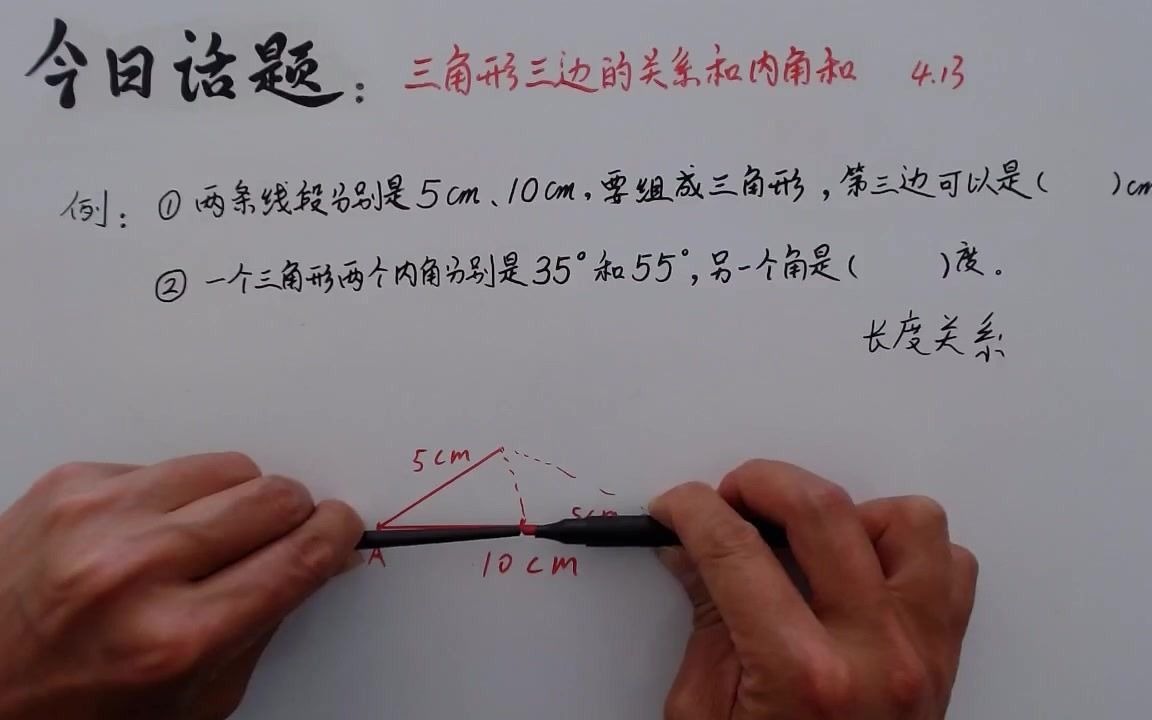 今日话题：三角形三边的关系和内角和 4.13
例：① 两条线段分别是5cm、10cm，要组成三角形，第三边可以是（ ）cm
② 一个三角形两个内角分别是35°和55°，另一个角是（ ）度。
长度关系
5cm
5cm
A
10cm